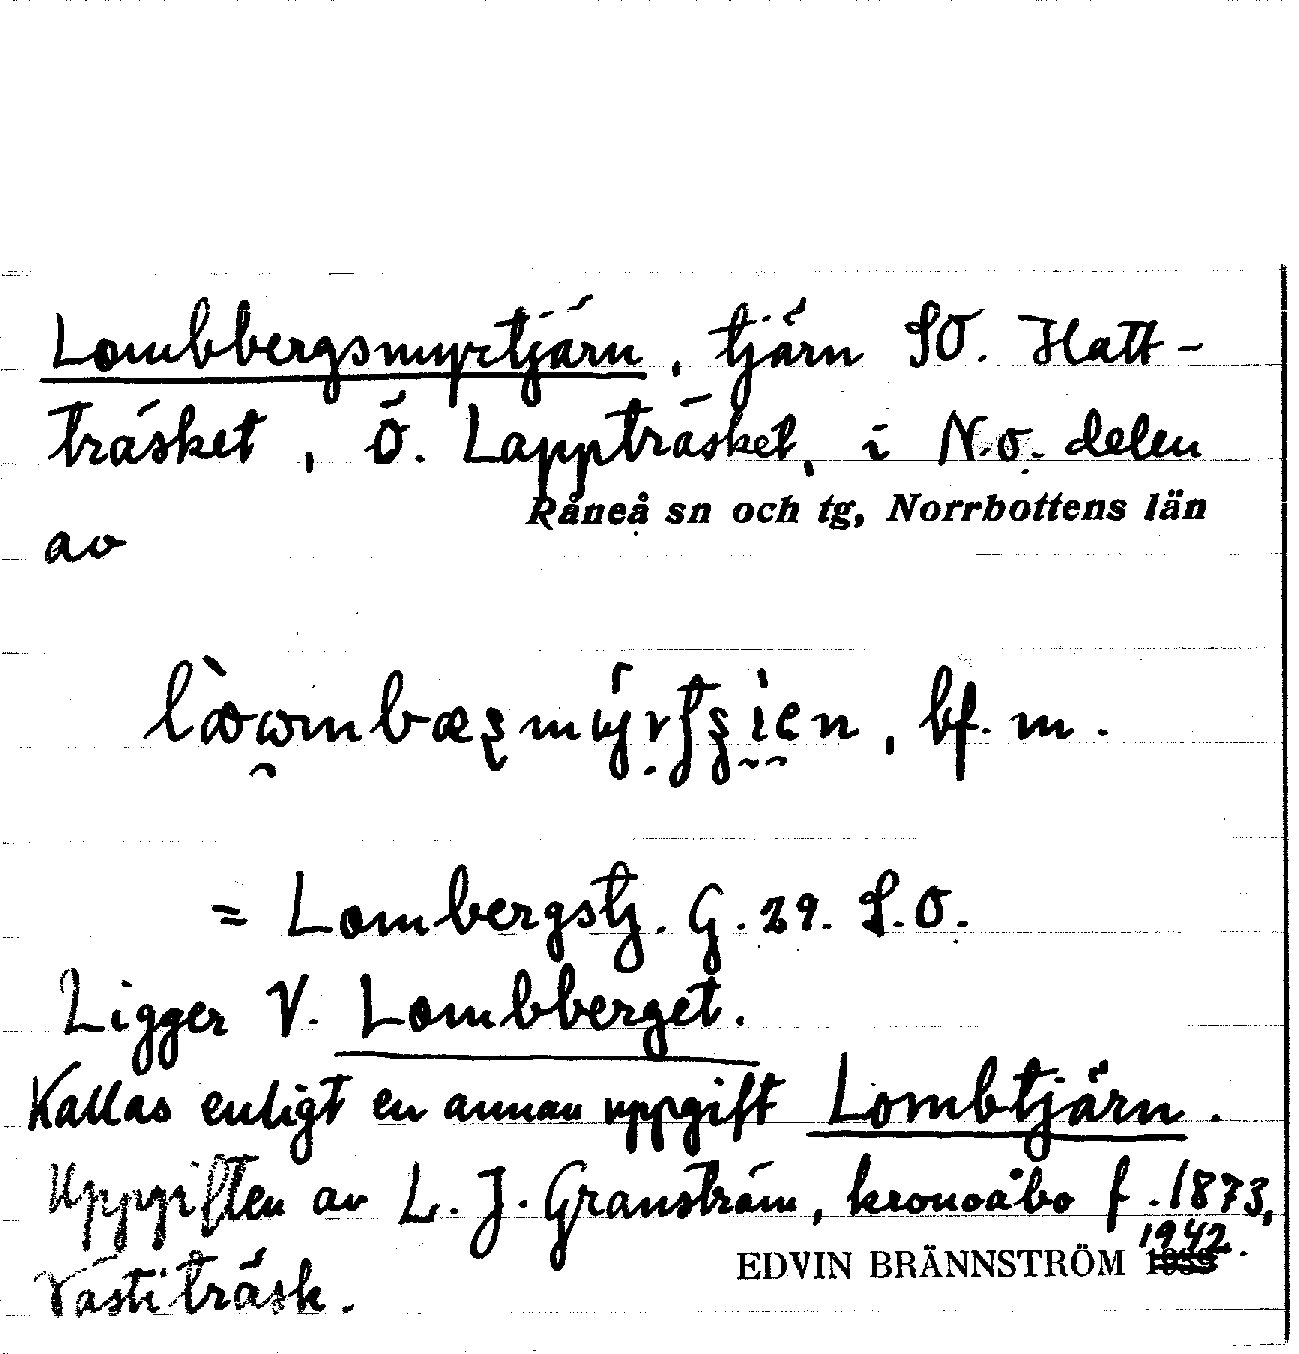 Lombbergsmyrtjärn, tjärn SO. Hatt-
träsket, Ö. Lappträsket, i N.O. delen
av Råneå sn och tg, Norrbottens län
bf. m.
= Lombergstj. G. 29. S.O.
Ligger V. Lombberget.
Kallas enligt en annan uppgift Lombtjärn.
Uppgiften av L. J. Granström, kronoåbo f. 1873,
Västiträsk.
EDVIN BRÄNNSTRÖM 1942.